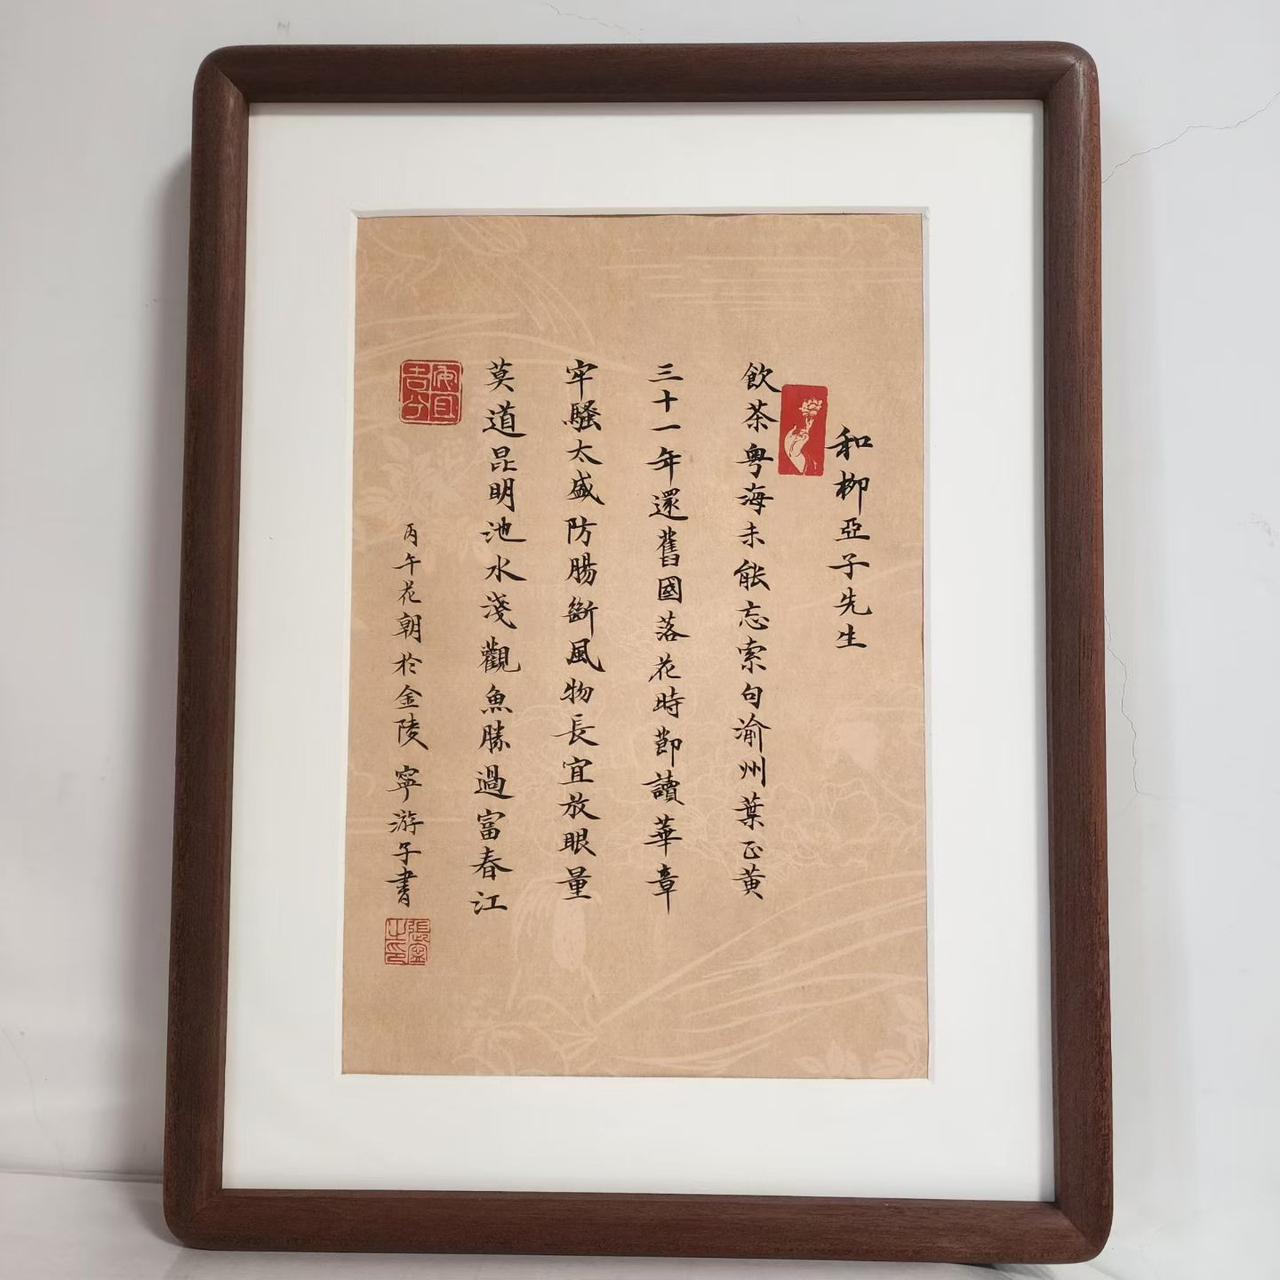 和柳亞子先生
飲茶粵海未能忘索句渝州葉正黃
三十一年還舊國落花時節讀華章
牢騷太盛防腸斷風物長宜放眼量
莫道昆明池水淺觀魚勝過富春江
丙午花朝於金陵寧游子書